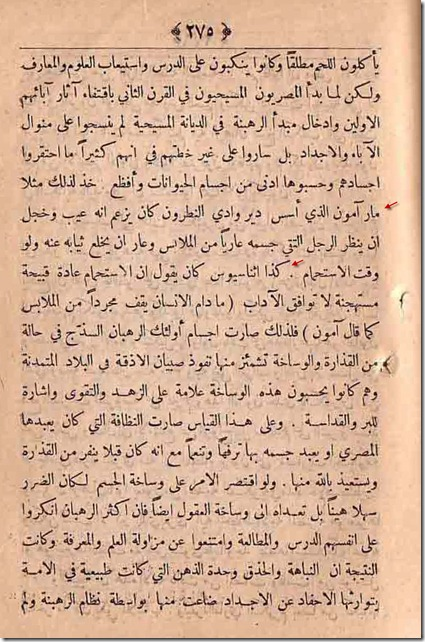 ﴿ ٢٧٥ ﴾
يأكلون اللحم مطلقاً وكانوا ينكبون على الدرس واستيعاب العلوم والمعارف
ولكن لما بدأ المصريون المسيحيون في القرن الثاني باقتفاء آثار آبائهم
الاولين وادخال مبدأ الرهبنة في الديانة المسيحية لم ينسجوا على منوال
الآباء والاجداد بل ساروا على غير خطتهم في انهم كثيراً ما احتقروا
اجسادهم وحسبوها ادنى من اجسام الحيوانات وأفظع . خذ لذلك مثلا
مار آمون الذي أسس دير وادي النطرون كان يزعم انه عيب وخجل
ان ينظر الرجل التقي جسمه عارياً من الملابس وعار ان يخلع ثيابه عنه ولو
وقت الاستحمام . كذا اثناسيوس كان يقول ان الاستحمام عادة قبيحة
مستهجنة لا توافق الآداب ( ما دام الانسان يقف مجرداً من الملابس
كما قال آمون ) فلذلك صارت اجسام أولئك الرهبان السذّج في حالة
من القذارة والوساخة تشمئز منها نفوذ صبيان الازقة في البلاد المتمدنة
وهم كانوا يحسبون هذه الوساخة علامة على الزهد والتقوى واشارة
للبر والقداسة . وعلى هذا القياس صارت النظافة التي كان يعبدها
المصري او يعبد جسمه بها ترفهاً وتنعماً مع انه كان قبلا ينفر من القذارة
ويستعيذ بالله منها . ولو اقتصر الامر على وساخة الجسم لكان الضرر
سهلا هيناً بل تعداه الى وساخة العقول ايضاً فان اكثر الرهبان انكروا
على انفسهم الدرس والمطالعة وامتنعوا عن مزاولة العلم والمعرفة وكانت
النتيجة ان النباهة والحذق وحدة الذهن التي كانت طبيعية في الامة
يتوارثها الاحفاد عن الاجداد ضاعت منها بواسطة نظام الرهبنة ولم